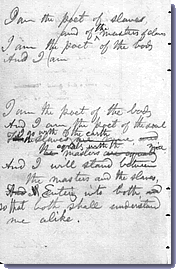 I am the poet of slaves,
and of the masters of slaves
I am the poet of the body
And I am
I am the poet of the body
And I am the poet of the soul
I go with the slaves of the earth
equally with the
masters are
And I will stand between
the masters and the slaves,
And I Entering into both
so that both shall understand
me alike.